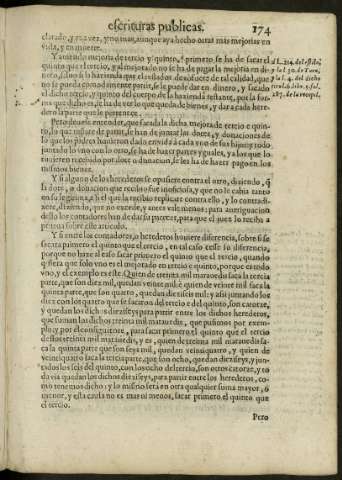 escrituras publicas. 174
clarado, y una vez, y no mas, aunque aya hecho otras mas mejorias en
vida, y en muerte.
Y auiendo mejoria de tercio y quinto, primero se ha de sacar el
quinto que el tercio, y al mejorado no se ha de pagar la mejoria en di-
nero, sino si la hazienda que el testador dexo fuere de tal calidad, que
no se pueda comodamente partir, se le puede dar en dinero, y sacado
el tercio y quinto del cuerpo de la hazienda restante, por la for-
ma que dicho es, se ha de ver lo que queda de bienes, y dar a cada here-
dero la parte que le pertenece.
Pero hase de entender, que sacada la dicha mejora de tercio e quin-
to, lo que restare de partir, se han de juntar los dotes, y donaciones de
lo que los padres huuieren dado en vida à cada vno de sus hijos: y todo
junto lo vno con lo otro, se ha de hazer partes yguales, y a los que lo
tuuieren recebido por dote o donacion, se les ha de hazer pago en los
mismos bienes.
Y si alguno de los herederos se opusiere contra el otro, diziendo, q̃
la dote, o donacion que recibio fue inoficiosa, y que no le cabia tanto
en su legitima, o si el que la recibio replicare contra ello, y lo contradi-
xere, diziendo, que no excede, y antes vale menos: para aueriguacion
desto los contadores han de dar su parecer, para que el juez lo reciba a
prueua sobre este articulo.
Y si entre los contadores, o herederos huuiere diferencia, sobre si se
sacara primero el quinto que el tercio, en tal caso cesse su diferencia,
porque no haze al caso sacar primero el quinto que el tercio, quando
quiera que solo vno es el mejorado en tercio e quinto, porque es todo
vno, y el exemplo es este. Quien de treinta mil marauedis saca la tercia
parte, que son diez mil, quedan veinte mil: e quien de veinte mil saca la
quinta parte, que son quatro, quedan dieziseis mil: y assi juntando los
diez con los quatro que se sacaron del tercio e del quinto, son catorze,
y quedan los dichos dieziseys para partir entre los dichos herederos,
que suman las dichas treinta mil marauedis, que pusimos por exem-
plo: y por el consiguiente, para sacar primero el quinto que el tercio
destos treinta mil marauedis, y es, quien de treinta mil marauedis sa-
ca la quinta parte que son seys mil, quedan veintiquatro, y quien de
veintiquatro saca la tercia parte, que son ocho, quedan dieziseys, y jun-
tados los seis del quinto, con los ocho del tercio, son otros catorze, y to-
da via quedan los dichos dieziseys, para partir entre los herederos, co-
mo tenemos dicho: y lo mismo será en otra qualquier suma mayor, ò
menor, y esta cuēta no es mas ni menos, sacar primero el quinto que
el tercio.
Pero